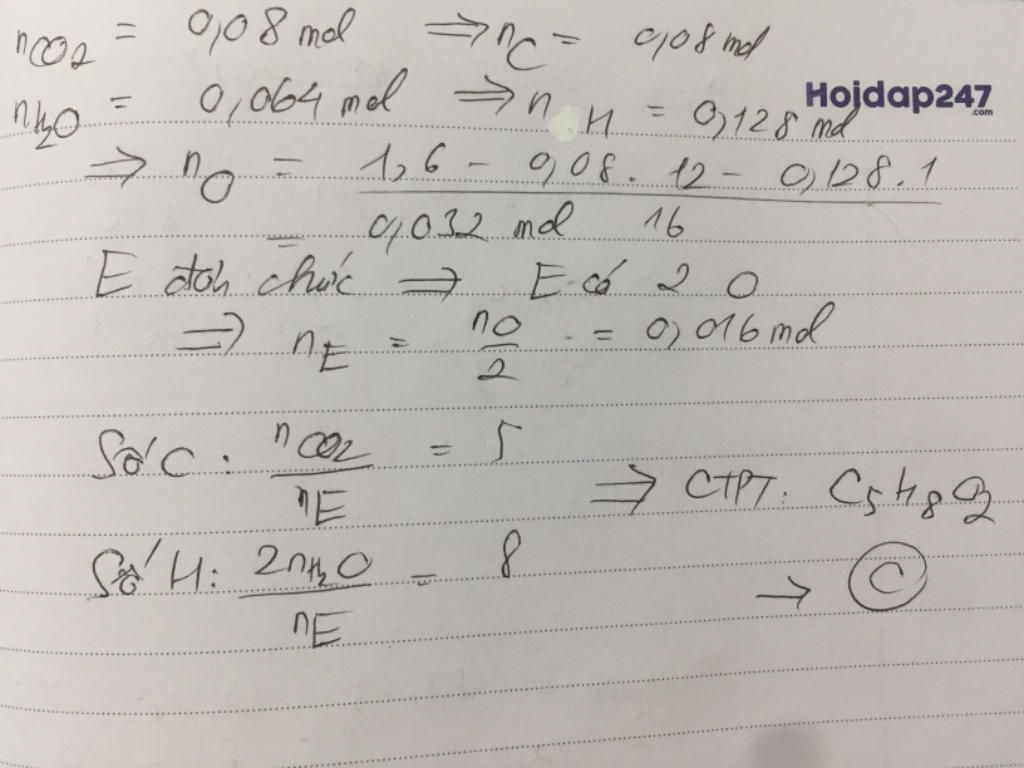 nCO2 = 0,08 mol ⇒ nC = 0,08 mol
Hoidap247
.com
nH2O = 0,064 mol ⇒ n H = 0,128 mol
⇒ nO = 1,6 - 0,08 . 12 - 0,128 . 1
16
= 0,032 mol
E đơn chức ⇒ E có 2 O
⇒ nE = nO / 2 = 0,016 mol
Số C : nCO2 / nE = 5
⇒ CTPT: C5H8O2
Số H: 2nH2O / nE = 8
→ C